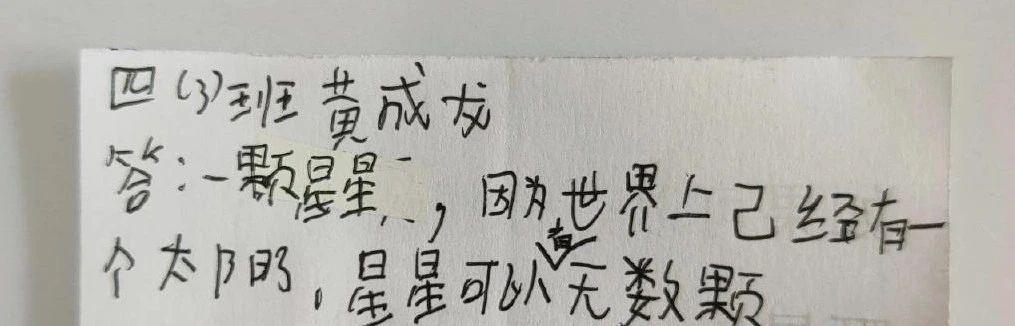 四(3)班黄成龙
答:一颗星星,因为世界上已经有一
个太阳了,星星可以有无数颗